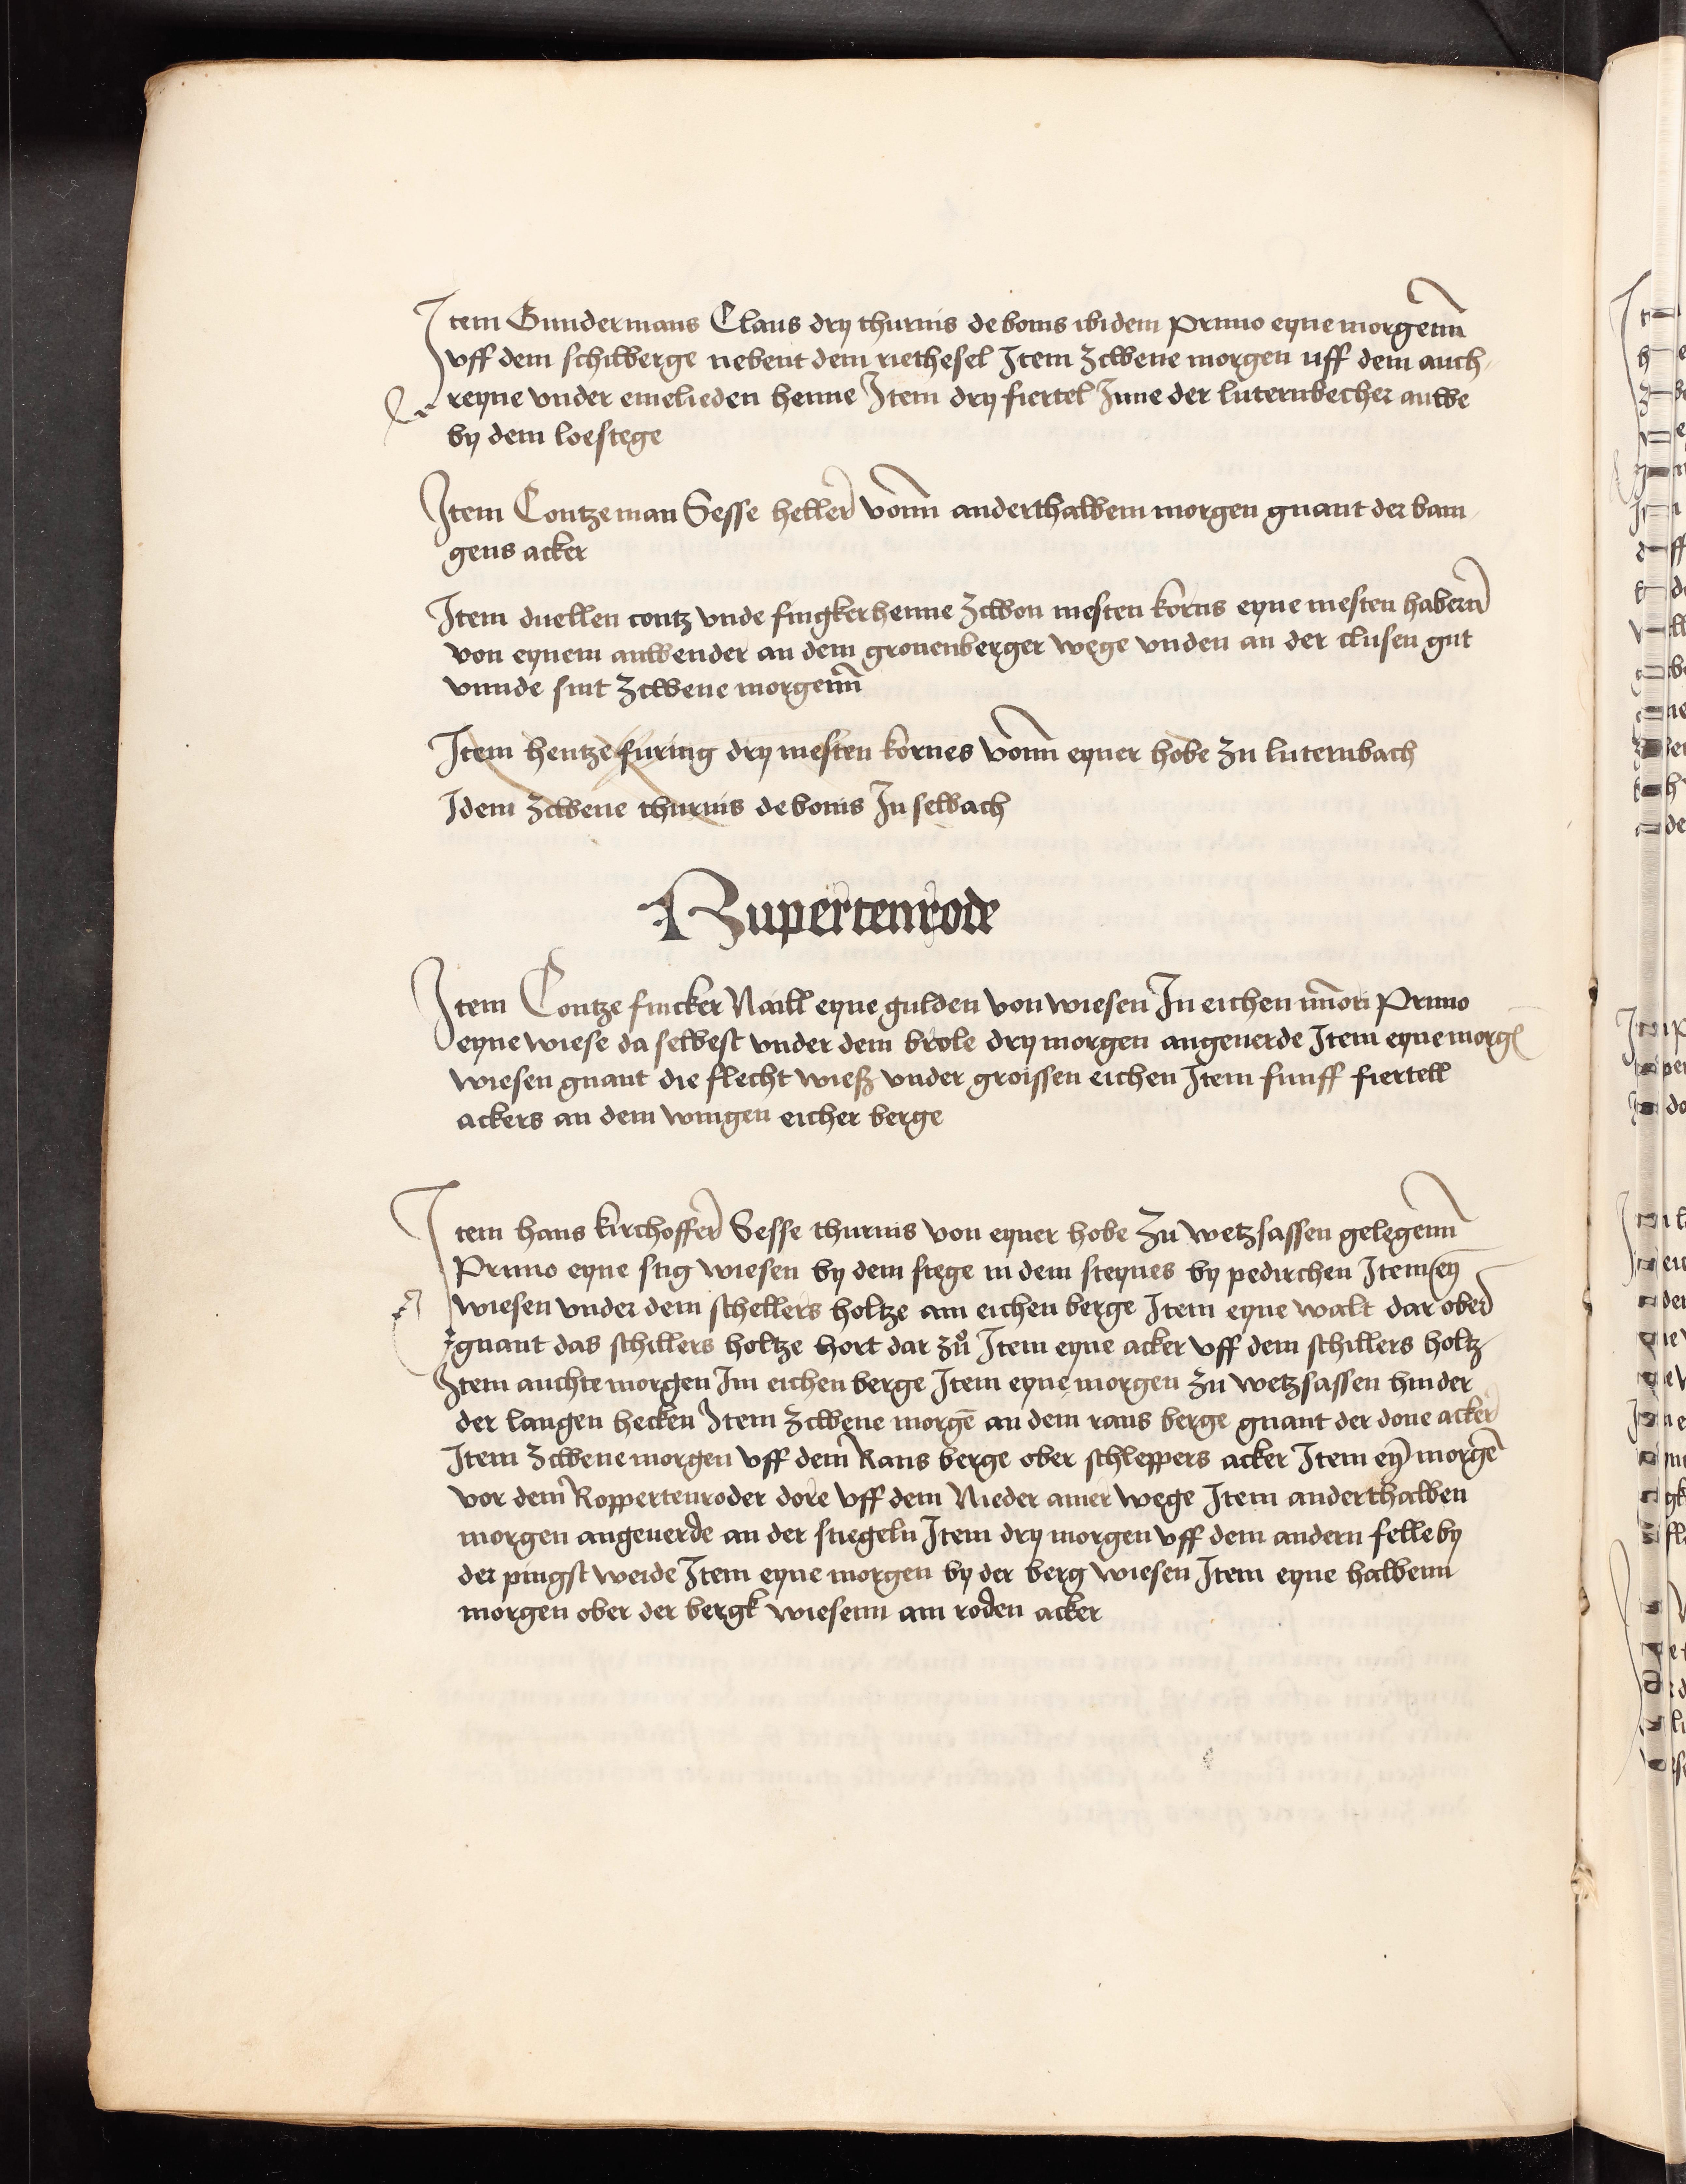 Item Gundermans Claus dry thurnis de bonis ibidem Primo eyne morgenn
vff dem schilberge nebent dem riethesel Item zcwene morgen uff dem auch
reyne vnder emelieden henne Item dry fiertel Inne der luternbecher auwe
by dem loestege
Item Contzeman Sesse heller vonn anderthalbem morgen gnant der bam
gens acker
Item duellen contz vnde fingkerhenne zcwon mesten korns eyne mesten habern
von eynem anwender an dem gronenberger wege vnden an der clusen gut
vnnde sint zcwene morgenn
Item hentze furing dry mesten kornes vonn eyner hobe zu luternbach
Idem zcwene thurnis de bonis In selbach
Rupertenrode
Item Contze fincker Naill eyne gulden von wiesen In eichen minori Primo
eyne wiese da selbest vnder dem brole dry morgen angeuerde Item eyne morg
wiesen gnant die flecht wieß vnder groissen eichen Item funff fiertell
ackers an dem wingen eicher berge
Item hans kirchoffer Sesse thurnis von eyner hobe zu wetzsassen gelegenn
Primo eyne stig wiesen by dem stege in dem steynes by pedirchen Item ey
wiesen vnder dem schellers holtze am eichen berge Item eyne walt dar ober
gnant das schillers holtze hort dar zů Item eyne acker vff dem schillers holtz
Item auchte morgen Im eichen berge Item eyne morgen zu wetzsassen hinder
der langen hecken Item zcwene morgē an dem rans berge gnant der done acker
Item zcwene morgen vff dem Rans berge ober schleppers acker Item ey morgē
vor dem Roppertenroder dore vff dem Nieder amer wege Item anderthalben
morgen angeuerde an der stiegeln Item dry morgen vff dem andern felle by
der pingst weide Item eyne morgen by der berg wiesen Item eyne halbenn
morgen ober der bergk wiesenn am roden acker